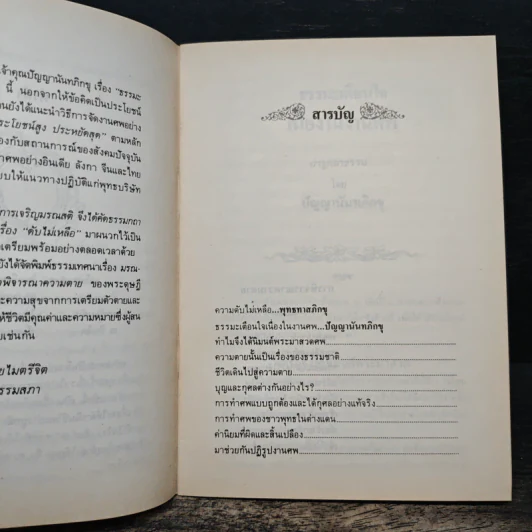 เจ้าคุณปัญญานันทภิกขุ เรื่อง "ธรรมะ
นี้ นอกจากให้ข้อคิดเป็นประโยชน์
านยังได้แนะนำวิธีการจัดงานศพอย่าง
ระโยชน์สูง ประหยัดสุด" ตามหลัก
องกับสถานการณ์ของสังคมปัจจุบัน
าศพอย่างอินเดีย ลังกา จีนและไทย
บให้แนวทางปฏิบัติแก่พุทธบริษัท
การเจริญมรณสติ จึงได้คัดธรรมกถา
รื่อง "ดับไม่เหลือ" มาผนวกไว้เป็น
เตรียมพร้อมอย่างตลอดเวลาด้วย
ยังได้จัดพิมพ์ธรรมเทศนาเรื่อง มรณ-
าพิจารณาความตาย ของพระดุษฎี
ละความสุขจากการเตรียมตัวตายและ
ห้ชีวิตมีคุณค่าและความหมายซึ่งผู้สน
ช่นเช่นกัน
วยไมตรีจิต
รรมสภา
สารบัญ
ความดับไม่เหลือ...พุทธทาสภิกขุ
ธรรมะเตือนใจเนื่องในงานศพ...ปัญญานันทภิกขุ
ทำไมจึงได้นิมนต์พระมาสวดศพ
ความตายนั้นเป็นเรื่องของธรรมชาติ
ชีวิตเดินไปสู่ความตาย
บุญและกุศลต่างกันอย่างไร?
การทำศพแบบถูกต้องและได้กุศลอย่างแท้จริง
การทำศพของชาวพุทธในต่างแดน
ค่านิยมที่ผิดและสิ้นเปลือง
มาช่วยกันปฏิรูปงานศพ